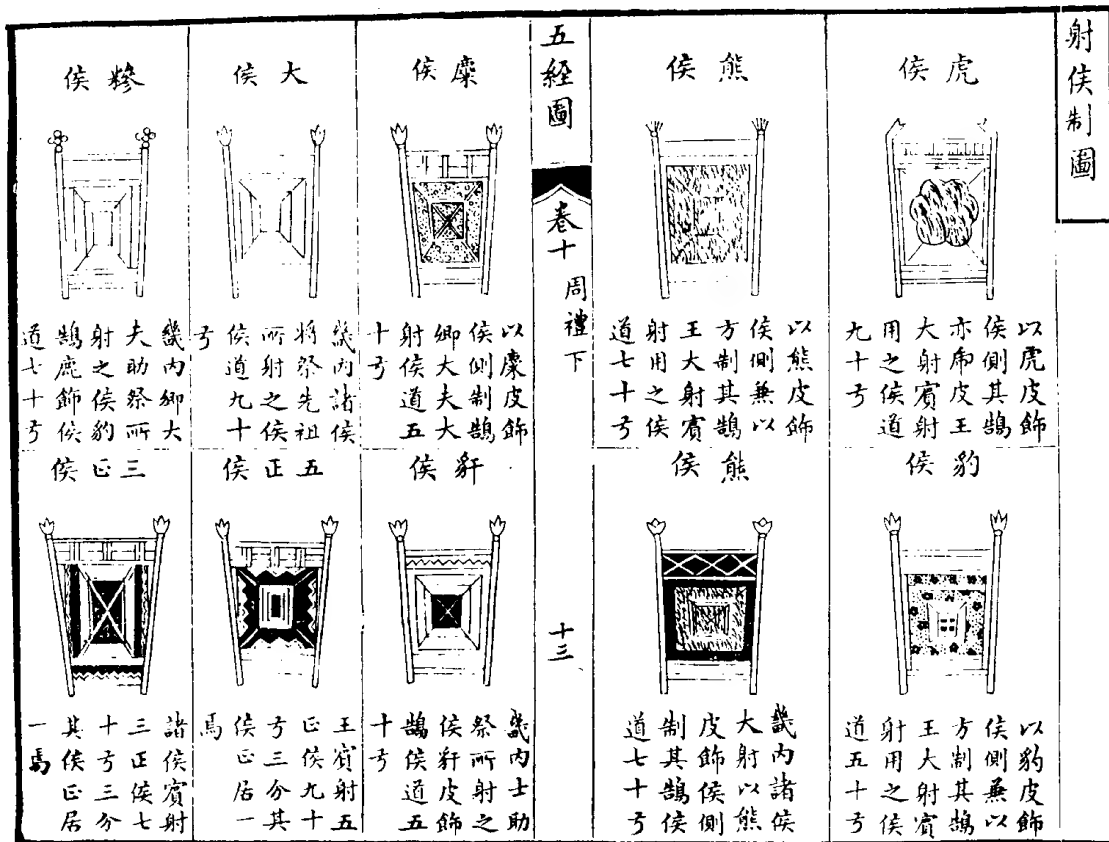 射侯制圖
虎侯
以虎皮飾
侯側其鵠
亦虎皮王
大射賓射
用之侯道
九十弓
豹侯
以豹皮飾
侯側兼以
方制其鵠
王大射賓
射用之侯
道五十弓
熊侯
以熊皮飾
侯側兼以
方制其鵠
王大射賓
射用之侯
道七十弓
熊侯
畿内諸侯
大射以熊
皮飾侯側
制其鵠侯
道七十弓
五經圖
卷十
周禮下
十三
麋侯
以麋皮飾
侯側制鵠
卿大夫大
射侯道五
十弓
豻侯
畿内士助
祭所射之
侯豻皮飾
鵠侯道五
十弓
大侯
畿内諸侯
將祭先祖
所射之侯
侯道九十
弓
五正侯
王賓射五
正侯九十
弓三分其
侯正居一
焉
糝侯
畿内卿大
夫助祭所
射之侯豹
鵠麂飾侯
道七十弓
三正侯
諸侯賓射
三正侯七
十弓三分
其侯正居
一焉